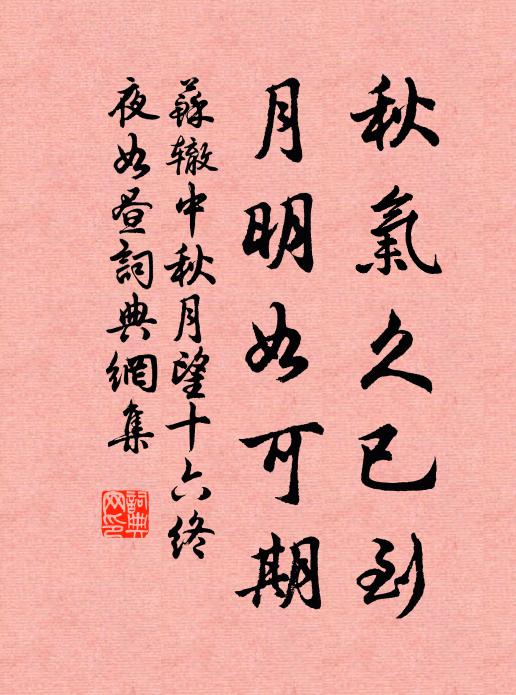 秋氣久已到
月明如可期
蘇轍中秋月望十六終
夜如晝詞典網集
詞典网印